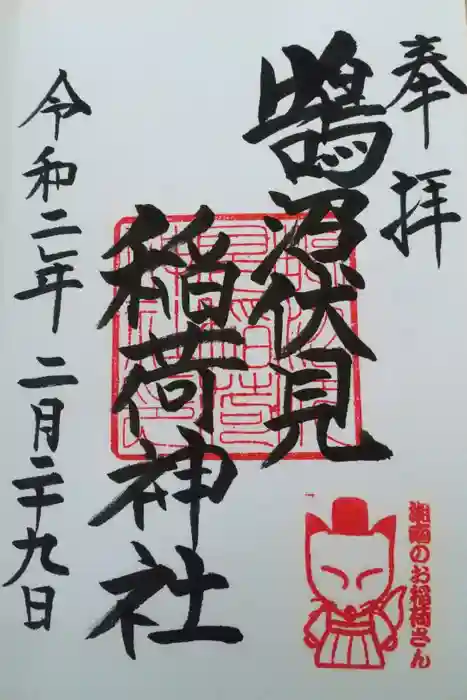 奉拝
鵠沼伏見
稲荷神社
令和二年二月二十九日
湘南のお稲荷さん